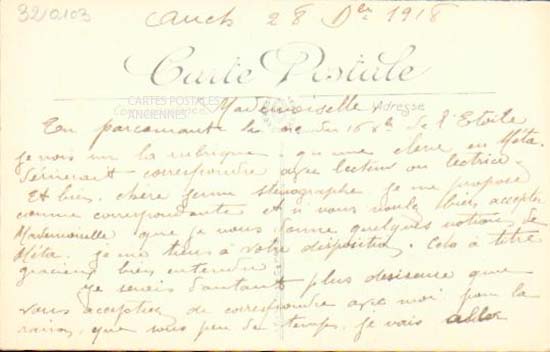 32/0103
Auch 28 Dec 1918
Carte Postale
CARTES POSTALES
ANCIENNES
Correspondance Adresse
Mademoiselle
En parcourant le de l'Etoile
je vois sur la rubrique qu'une élève en Méta.
désirerait correspondre avec lecteur ou lectrice.
Et bien, chère jeune sténographe je me propose
comme correspondante et si vous voulez bien accepter
Mademoiselle que je vous donne quelques notions de
Méta. je me tiens à votre disposition. Cela à titre
gracieux bien entendu
Je serais d'autant plus désireuse que
vous acceptiez de correspondre avec moi pour la
raison, que sous peu de temps, je vais aller